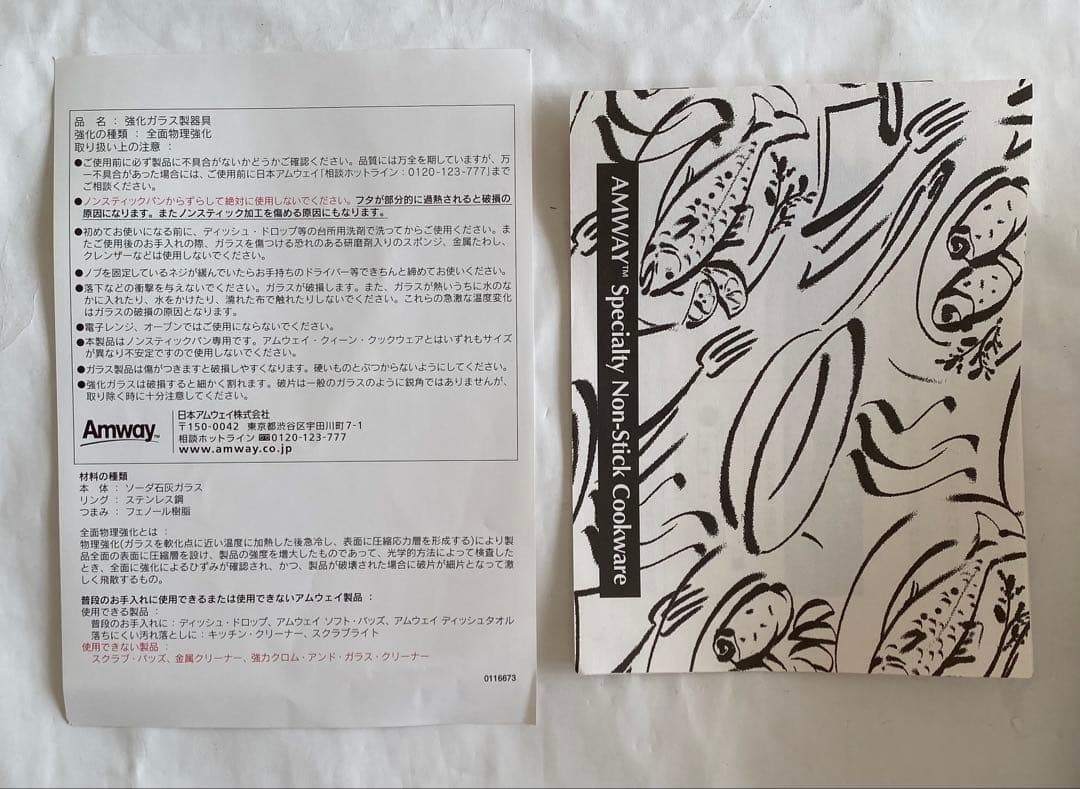 品　名 ： 強化ガラス製器具
強化の種類 ： 全面物理強化
取り扱い上の注意 ：
●ご使用前に必ず製品に不具合がないかどうかご確認ください。品質には万全を期していますが、万
一不具合があった場合には、ご使用前に日本アムウェイ「相談ホットライン：0120-123-777」まで
ご相談ください。
●ノンスティックパンからずらして絶対に使用しないでください。フタが部分的に過熱されると破損の
原因になります。またノンスティック加工を傷める原因にもなります。
●初めてお使いになる前に、ディッシュ・ドロップ等の台所用洗剤で洗ってからご使用ください。ま
たご使用後のお手入れの際、ガラスを傷つける恐れのある研磨剤入りのスポンジ、金属たわし、
クレンザーなどは使用しないでください。
●ノブを固定しているネジが緩んでいたらお手持ちのドライバー等できちんと締めてお使いください。
●落下などの衝撃を与えないでください。ガラスが破損します。また、ガラスが熱いうちに水のな
かに入れたり、水をかけたり、濡れた布で触れたりしないでください。これらの急激な温度変化
はガラスの破損の原因となります。
●電子レンジ、オーブンではご使用にならないでください。
●本製品はノンスティックパン専用です。アムウェイ・クィーン・クックウェアとはいずれもサイズ
が異なり不安定ですので使用しないでください。
●ガラス製品は傷がつきますと破損しやすくなります。硬いものとぶつからないようにしてください。
●強化ガラスは破損すると細かく割れます。破片は一般のガラスのように鋭角ではありませんが、
取り除く時に十分注意してください。
Amway™
日本アムウェイ株式会社
〒150-0042　東京都渋谷区宇田川町7-1
相談ホットライン 0120-123-777
www.amway.co.jp
材料の種類
本　体 ： ソーダ石灰ガラス
リング ： ステンレス鋼
つまみ ： フェノール樹脂
全面物理強化とは ：
物理強化(ガラスを軟化点に近い温度に加熱した後急冷し、表面に圧縮応力層を形成する)により製
品全面の表面に圧縮層を設け、製品の強度を増大したものであって、光学的方法によって検査した
とき、全面に強化によるひずみが確認され、かつ、製品が破壊された場合に破片が細片となって激
しく飛散するもの。
普段のお手入れに使用できるまたは使用できないアムウェイ製品 ：
使用できる製品 ：
普段のお手入れに：ディッシュ・ドロップ、アムウェイ ソフト・パッズ、アムウェイ ディッシュタオル
落ちにくい汚れ落としに：キッチン・クリーナー、スクラブライト
使用できない製品 ：
スクラブ・パッズ、金属クリーナー、強力クロム・アンド・ガラス・クリーナー
0116673
AMWAY™ Specialty Non-Stick Cookware